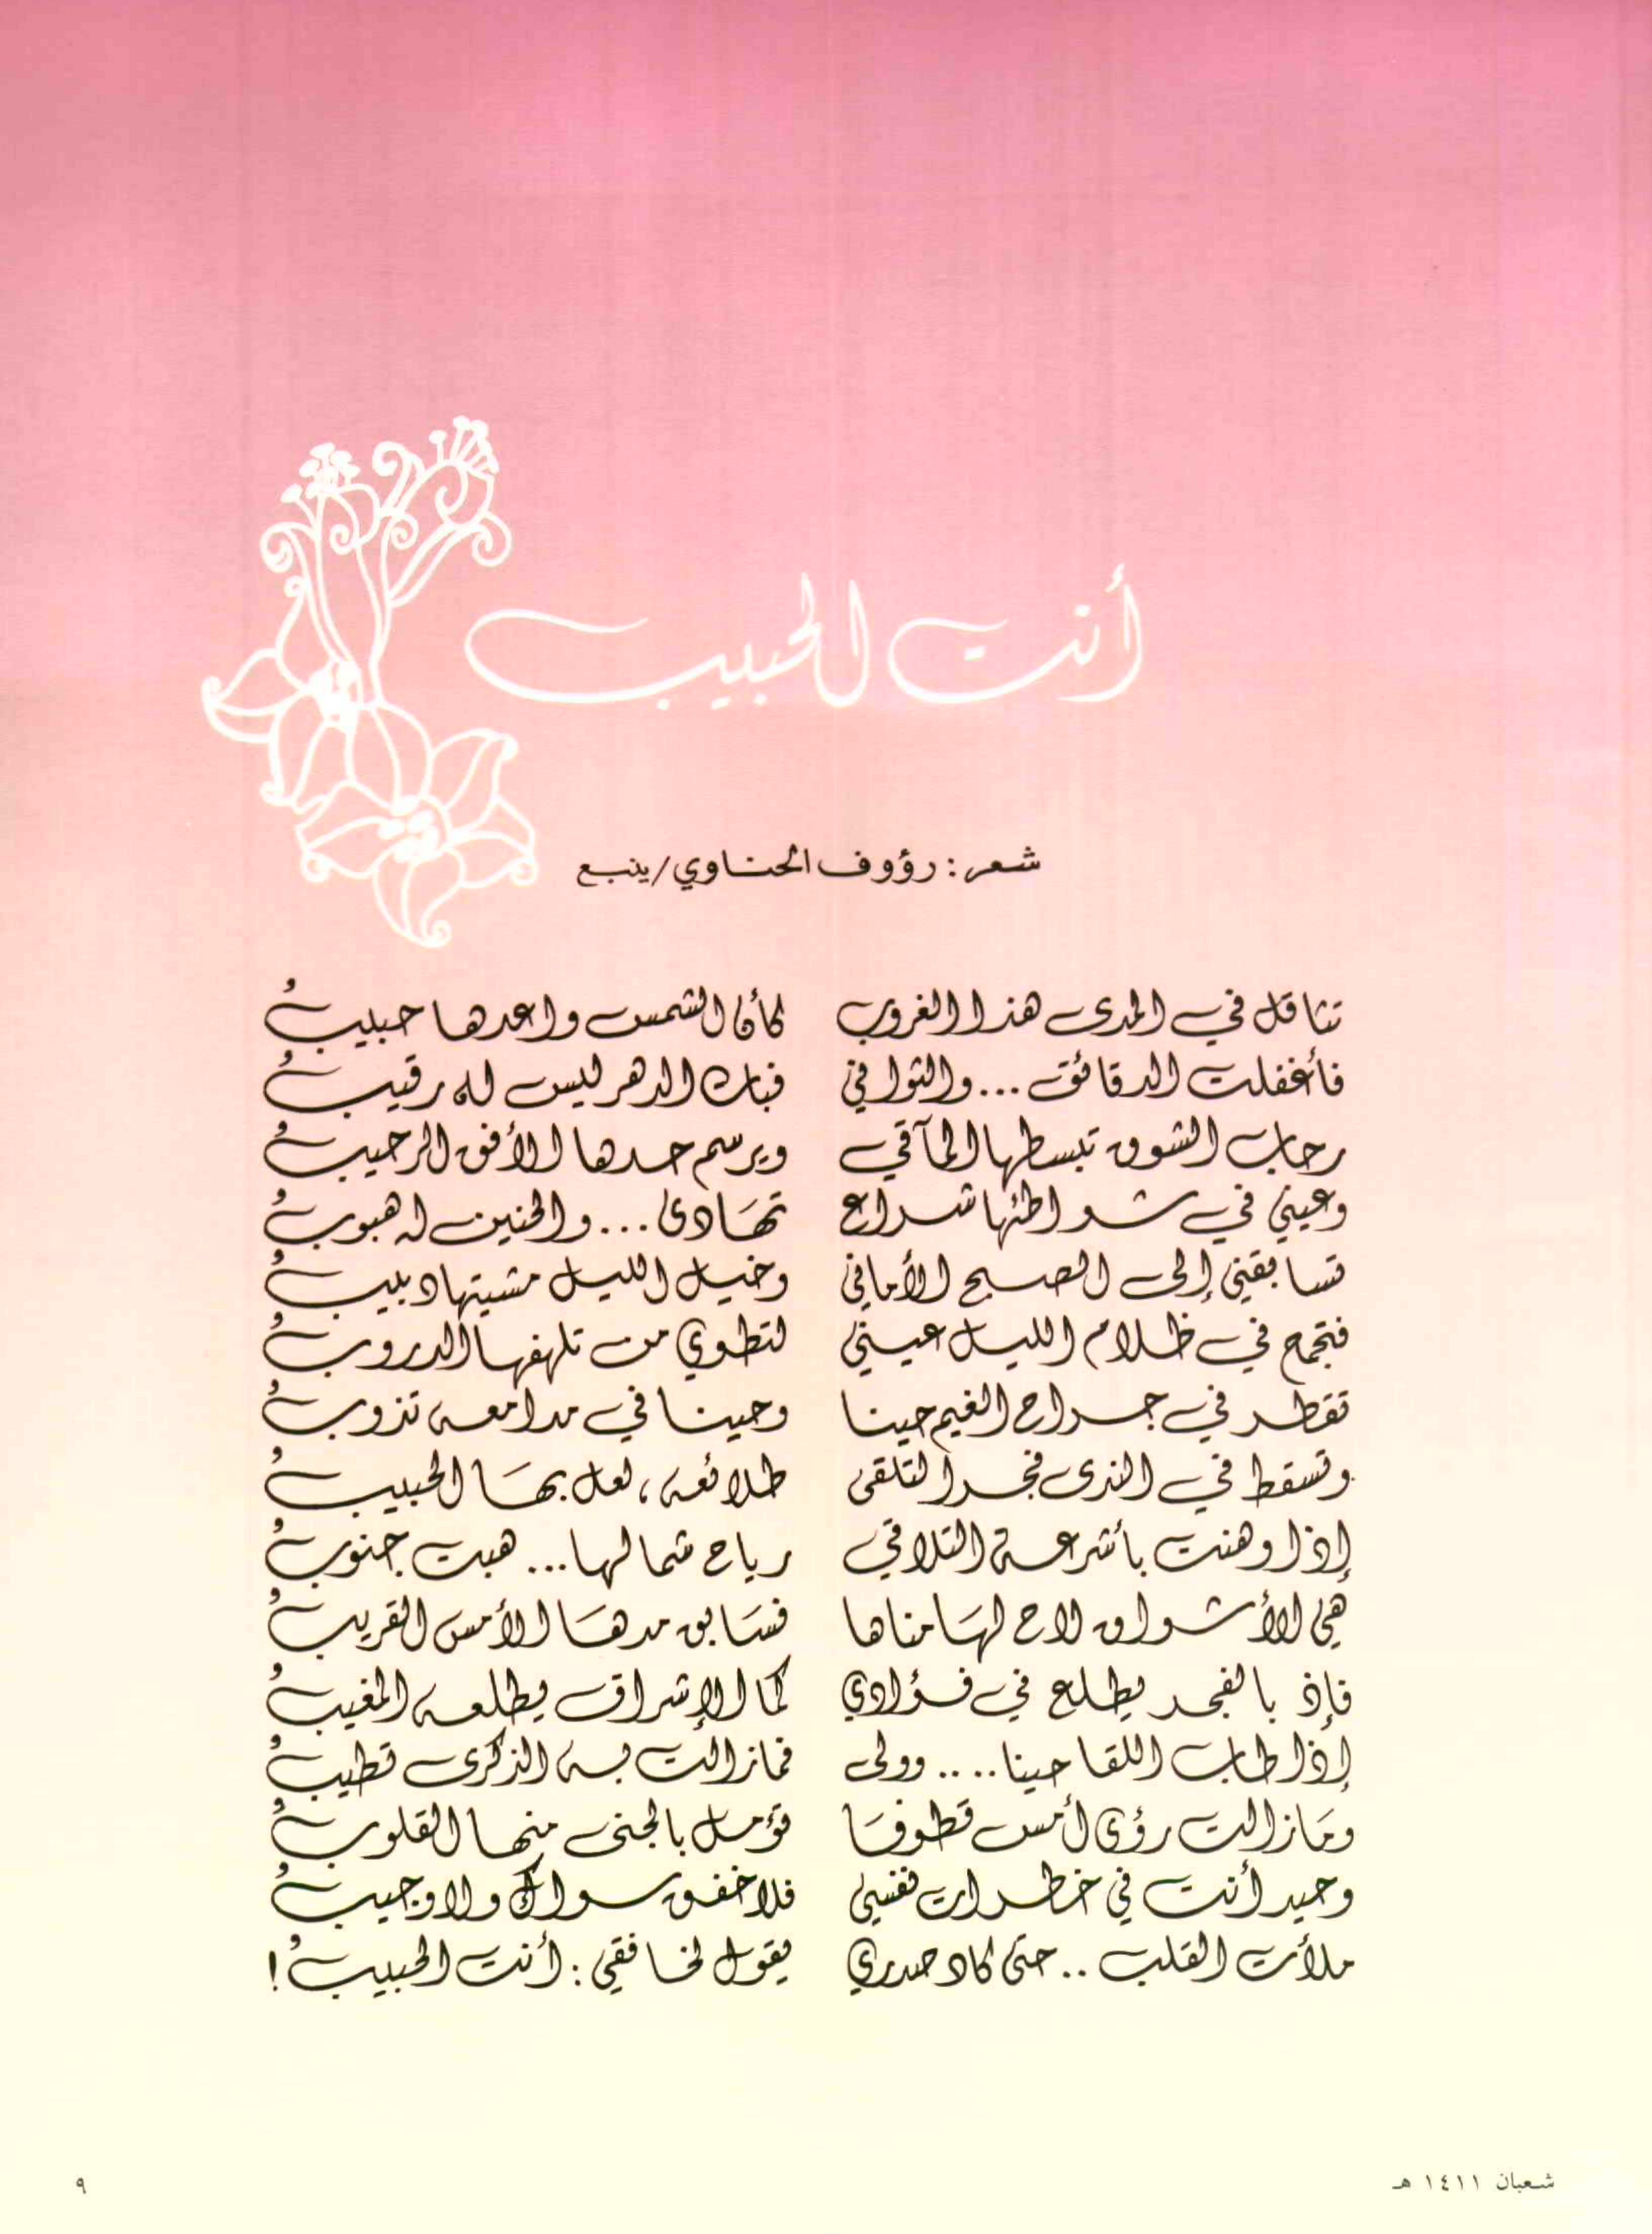 أنت الحبيب
شعر: رؤوف الحناوي/ينبع
تثاقل في المدى هذا الغروب كأن الشمس واعدها حبيبُ
فأغفلت الدقائق ... والثواني فبات الدهر ليس له رقيبُ
رحاب الشوق تبسطها المآقي ويرسم حدها الأفق الرحيبُ
وعيني في شواطئها شراع تهَادى ... والحنين له هبوبُ
تسابقني إلى الصبح الأماني وخيل الليل مشيتها دبيبُ
فتجمح في ظلام الليل عيني لتطوي من تلهفها الدروبُ
تقطر في جراح الغيم حينا وحينا في مدامعه تذوبُ
وتسقط في الندى فجرا لتلقى طلائعه، لعل بهَا الحبيبُ
إذا وهنت بأشرعة التلاقي رياح شمالها... هبت جنوبُ
هي الأشواق لاح لهَا مناها فسَابق مدهَا الأمس القريبُ
فإذ بالفجر يطلع في فؤادي كما الإشراق يطلعه المغيبُ
إذا طاب اللقا حينا .... وولى فمازالت به الذكرى تطيبُ
ومَازالت رؤى أمس قطوفَا تؤمل بالجنى منها القلوبُ
وحيد أنت في خطرات نفسي فلا خفق سواك ولا وجيبُ
ملأت القلب .. حتى كاد صدري يقول لخافقي: أنت الحبيبُ!
شعبان ١٤١١ هـ
٩